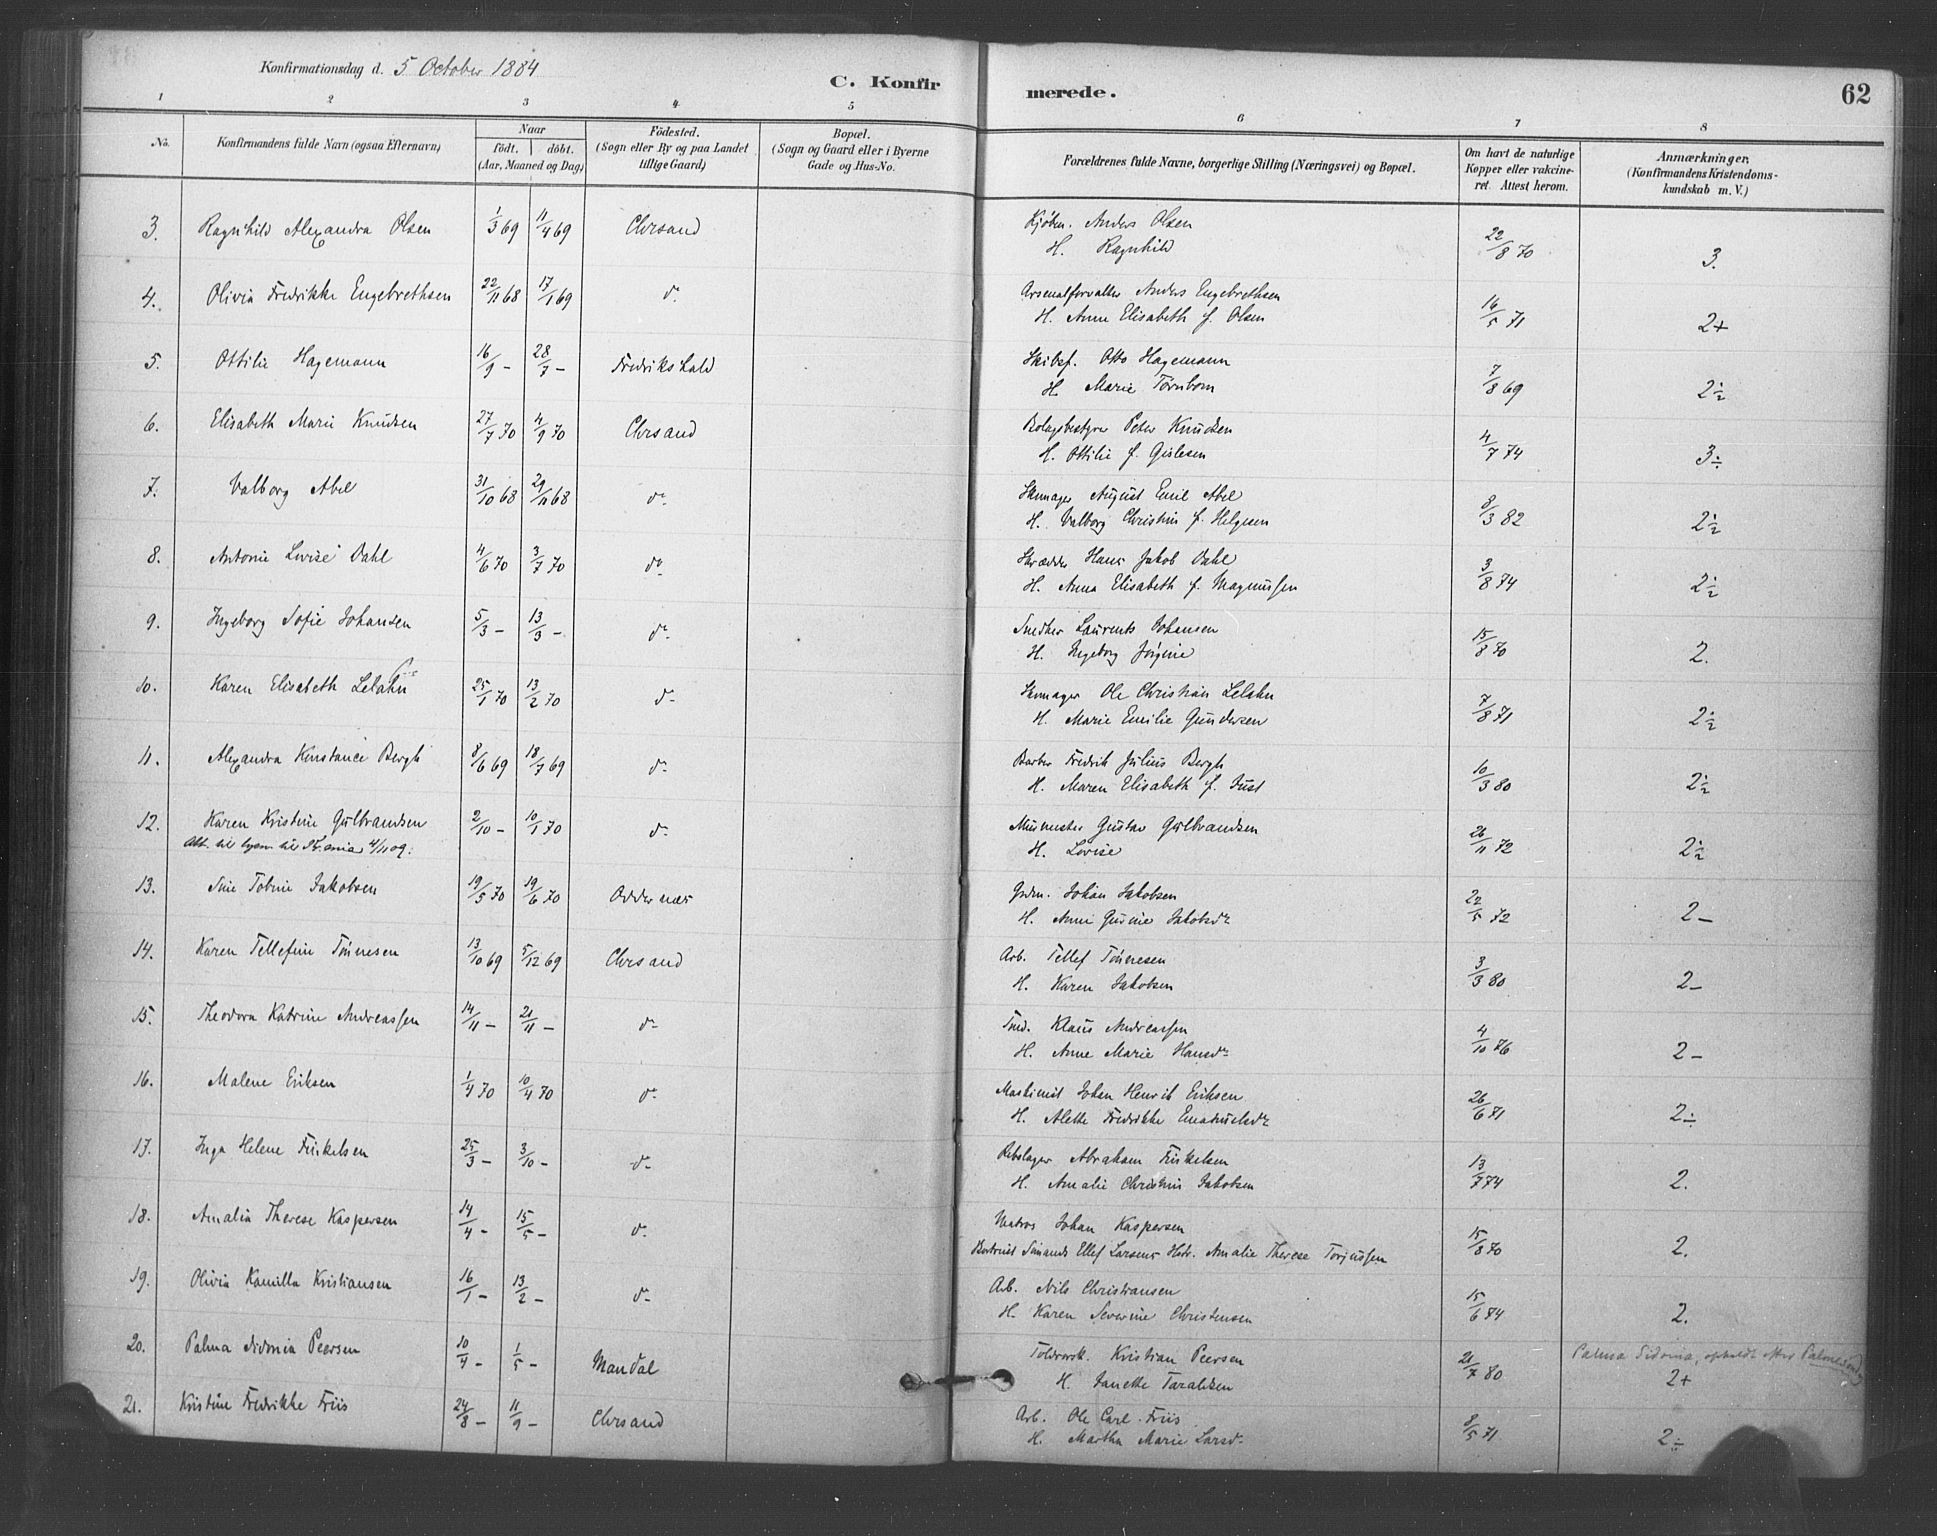 Konfirmationsdag d. 5 October 1884
C. Konfir merede. 62
1 2 3 4 5 6 7 8
No. Konfirmandens fulde Navn (ogsaa Efternavn) Naar födt. döbt. (Aar, Maaned og Dag) Födested. (Sogn eller By og paa Landet tillige Gaard) Bopæl. (Sogn og Gaard eller i Byerne Gade og Hus-No. Forældrenes fulde Navne, borgerlige Stilling (Næringsvei) og Bopæl. Om havt de naturlige Kopper eller vakcineret. Attest herom. Anmærkninger, (Konfirmandens Kristendomskundskab m. V.)
3. Ragnhild Alexandra Olsen 1/3 69 11/4 69 Chrsand Kjøbm. Anders Olsen 22/8 70 3.
H. Ragnhild
4. Olivia Fredrikke Engebrethsen 22/11 68 17/1 69 do Arsenalforvalter Anders Engebrethsen 16/5 71 2+
H. Anne Elisabeth f. Olsen
5. Ottilie Hagemann 16/9 - 28/7 - Fredrikshald Skibsf. Otto Hagemann 7/8 69 2½
H. Marie Törnbom
6. Elisabeth Marie Knudsen 27/7 70 4/9 70 Chrsand Bolagsbestyrer Peter Knudsen 4/7 74 3÷
H. Ottilie f. Gislesen
7. Valborg Abel 31/10 68 29/11 68 do Skomager August Emil Abel 8/3 82 2½
H. Valborg Christine f. Helgesen
8. Antonie Lovise Dahl 4/6 70 3/7 70 do Skrædder Hans Jakob Dahl 3/8 74 2½
H. Anna Elisabeth f. Magnussen
9. Ingeborg Sofie Johansen 5/3 - 13/3 - do Snedker Laurents Johansen 15/8 70 2.
H. Ingeborg Jörgine
10. Karen Elisabeth Lelahn 25/1 70 13/2 70 do Skomager Ole Christian Lelahn 7/8 71 2½
H. Marie Emilie Gundersen
11. Alexandra Konstance Bergh 8/6 69 18/7 69 do Barber Fredrik Julius Bergh 10/3 80 2½
H. Maren Elisabeth f. Just
12. Karen Kristine Gulbrandsen 2/10 - 10/1 70 do Murmester Gustav Gulbrandsen 26/11 72 2½
Att. til til Kr.ania 4/11 09. H. Lovise
13. Sine Tobine Jakobsen 19/5 70 19/6 70 Oddernæs Grdm. Johan Jakobsen 22/5 72 2-
H. Anne Gurine Jakobsdr
14. Karen Tellefine Tönnesen 13/10 69 5/12 69 Chrsand Arb. Tellef Tönnesen 3/3 80 2-
H. Karen Jakobsen
15. Theodora Katrine Andreassen 14/11 - 21/11 - do Tömd. Klaus Andreassen 4/10 76 2-
H. Anne Marie Hansdr
16. Malene Eriksen 1/4 70 10/4 70 do Maskinist Johan Henrik Eriksen 26/6 71 2÷
H. Alette Fredrikke Emanuelsdr
17. Inga Helene Finkelsen 25/3 - 3/10 - do Rebslager Abraham Finkelsen 13/7 74 2.
H. Amalie Christine Jakobsen
18. Amalia Therese Kaspersen 14/4 - 15/5 - do Matros Johan Kaspersen 15/8 70 2.
Bortreist Sömands Ellef Larsens Hstr. Amalie Therese Torjussen
19. Olivia Kamilla Kristiansen 16/1 - 13/2 - do Arb. Nils Christiansen 15/6 74 2.
H. Karen Severine Christensen
20. Palma Sidonia Peersen 10/4 - 1/5 - Mandal Toldrorsk. Kristian Peersen 21/7 80 Palma Sidonia, opkaldt efter Palmesöndag 2+
H. Janette Taraldsen
21. Kristine Fredrikke Friis 24/8 - 11/9 - Chrsand Arb. Ole Carl Friis 8/5 71 2÷
H. Martha Marie Larsdr